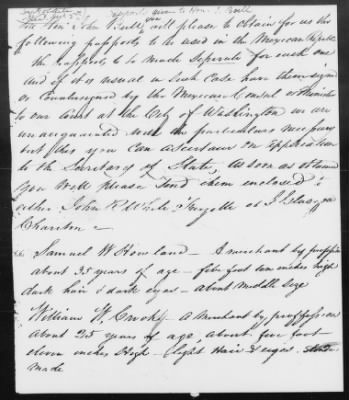 The Hon. John Bull you will please to obtain for us the
following passports to be used in the Mexican Republic
the Passports to be made Seperate for each one
and if it is usual in Such Case have them signed
or Countersigned by the Mexican Consul or Minister
to our Court at the City of Washington we are
unacquainted with the particulars necessary
but this you Can ascertain on application
to the Secretary of State, as soon as obtained
you Will please Send them enclosed to
either John R White Fayette or
Chariton
Samuel W Howland - A merchant by profession
about 35 years of age - five foot ten inches high
dark hair & dark eyes - about middle size
William W. Crooks - a Merchant by profession
about 25 years of age, about five foot
eleven inches High - light Hair & eyes
made